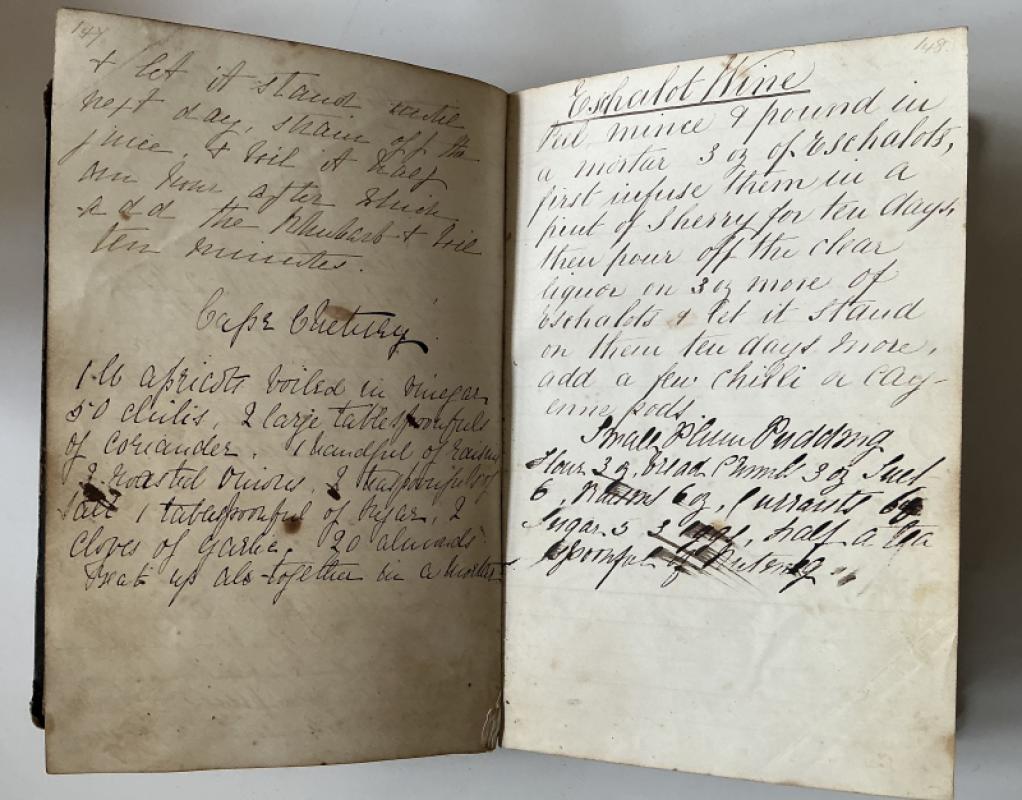 147
& let it stand until
next day, strain off the
juice, & boil it half
an hour after which
add the Rhubarb & boil
ten minutes.
Cape Chutney
1 lb apricots boiled in vinegar
50 chilis, 2 large tablespoonfuls
of coriander. 1 handful of raisins
2 roasted onions, 2 teaspoonfuls of
salt 1 tablespoonful of sugar, 2
cloves of garlic, 20 almonds
Beat up all together in a mortar
148.
Eschalot Wine
Peel, mince & pound in
a mortar 3 oz of Eschalots,
first infuse them in a
pint of Sherry for ten days,
then pour off the clear
liquor on 3 oz more of
Eschalots & let it stand
on them ten days more,
add a few Chilli or Cay-
enne pods.
Small Plum Pudding
Flour 3 oz, bread Crumbs 3 oz Suet
6, Raisins 6 oz, Currants 6 oz
Sugar 5 3 eggs, half a tea
spoonful of Nutmeg